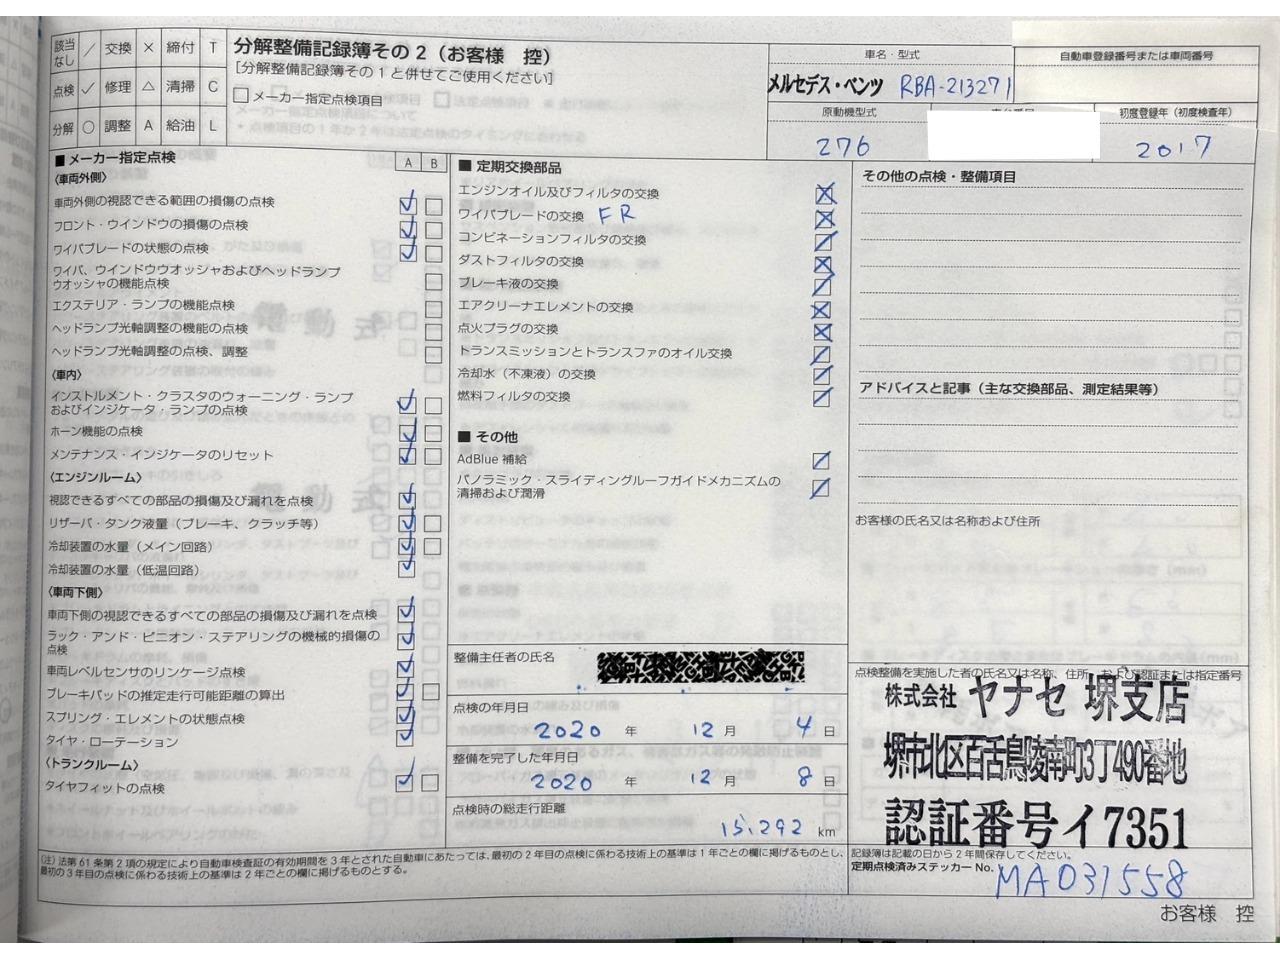 該当なし ／ 交換 × 締付 T
点検 ✓ 修理 △ 清掃 C
分解 ○ 調整 A 給油 L
分解整備記録簿その2（お客様　控）
[分解整備記録簿その1と併せてご使用ください]
□ メーカー指定点検項目
車名・型式
メルセデス・ベンツ RBA-213271
自動車登録番号または車両番号
原動機型式
276
初度登録年（初度検査年）
2017
■ メーカー指定点検
A B
〈車両外側〉
車両外側の視認できる範囲の損傷の点検
フロント・ウインドウの損傷の点検
ワイパブレードの状態の点検
ワイパ、ウインドウウオッシャおよびヘッドランプ
ウオッシャの機能点検
エクステリア・ランプの機能点検
ヘッドランプ光軸調整の機能の点検
ヘッドランプ光軸調整の点検、調整
〈車内〉
インストルメント・クラスタのウォーニング・ランプ
およびインジケータ・ランプの点検
ホーン機能の点検
メンテナンス・インジケータのリセット
〈エンジンルーム〉
視認できるすべての部品の損傷及び漏れを点検
リザーバ・タンク液量（ブレーキ、クラッチ等）
冷却装置の水量（メイン回路）
冷却装置の水量（低温回路）
〈車両下側〉
車両下側の視認できるすべての部品の損傷及び漏れを点検
ラック・アンド・ピニオン・ステアリングの機械的損傷の
点検
車両レベルセンサのリンケージ点検
ブレーキパッドの推定走行可能距離の算出
スプリング・エレメントの状態点検
タイヤ・ローテーション
〈トランクルーム〉
タイヤフィットの点検
■ 定期交換部品
エンジンオイル及びフィルタの交換
ワイパブレードの交換 FR
コンビネーションフィルタの交換
ダストフィルタの交換
ブレーキ液の交換
エアクリーナエレメントの交換
点火プラグの交換
トランスミッションとトランスファのオイル交換
冷却水（不凍液）の交換
燃料フィルタの交換
■ その他
AdBlue 補給
パノラミック・スライディングルーフガイドメカニズムの
清掃および潤滑
整備主任者の氏名
点検の年月日
2020 年 12 月 4 日
整備を完了した年月日
2020 年 12 月 8 日
点検時の総走行距離
15,292 km
その他の点検・整備項目
アドバイスと記事（主な交換部品、測定結果等）
お客様の氏名又は名称および住所
点検整備を実施した者の氏名又は名称、住所、および認証または指定番号
株式会社 ヤナセ 堺支店
堺市北区百舌鳥陵南町3丁490番地
認証番号イ7351
（注）法第61条第2項の規定により自動車検査証の有効期間を3年とされた自動車にあたっては、最初の2年目の点検に係わる技術上の基準は1年ごとの欄に掲げるものとし、
最初の3年目の点検に係わる技術上の基準は2年ごとの欄に掲げるものとする。
記録簿は記載の日から2年間保存してください。
定期点検済みステッカーNo. MA031558
お客様　控